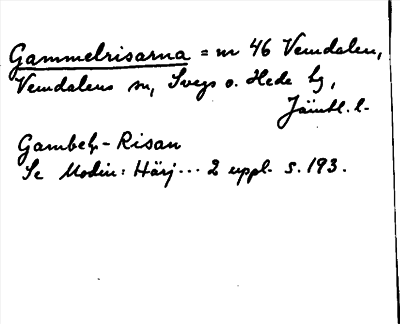 Gammelrisarna = nr 46 Vemdalen,
Vemdalens sn, Svegs o. Hede tg,
Jämtl. l.
Gambel- Risan
Se Modin: Härj... 2 uppl. s. 193.